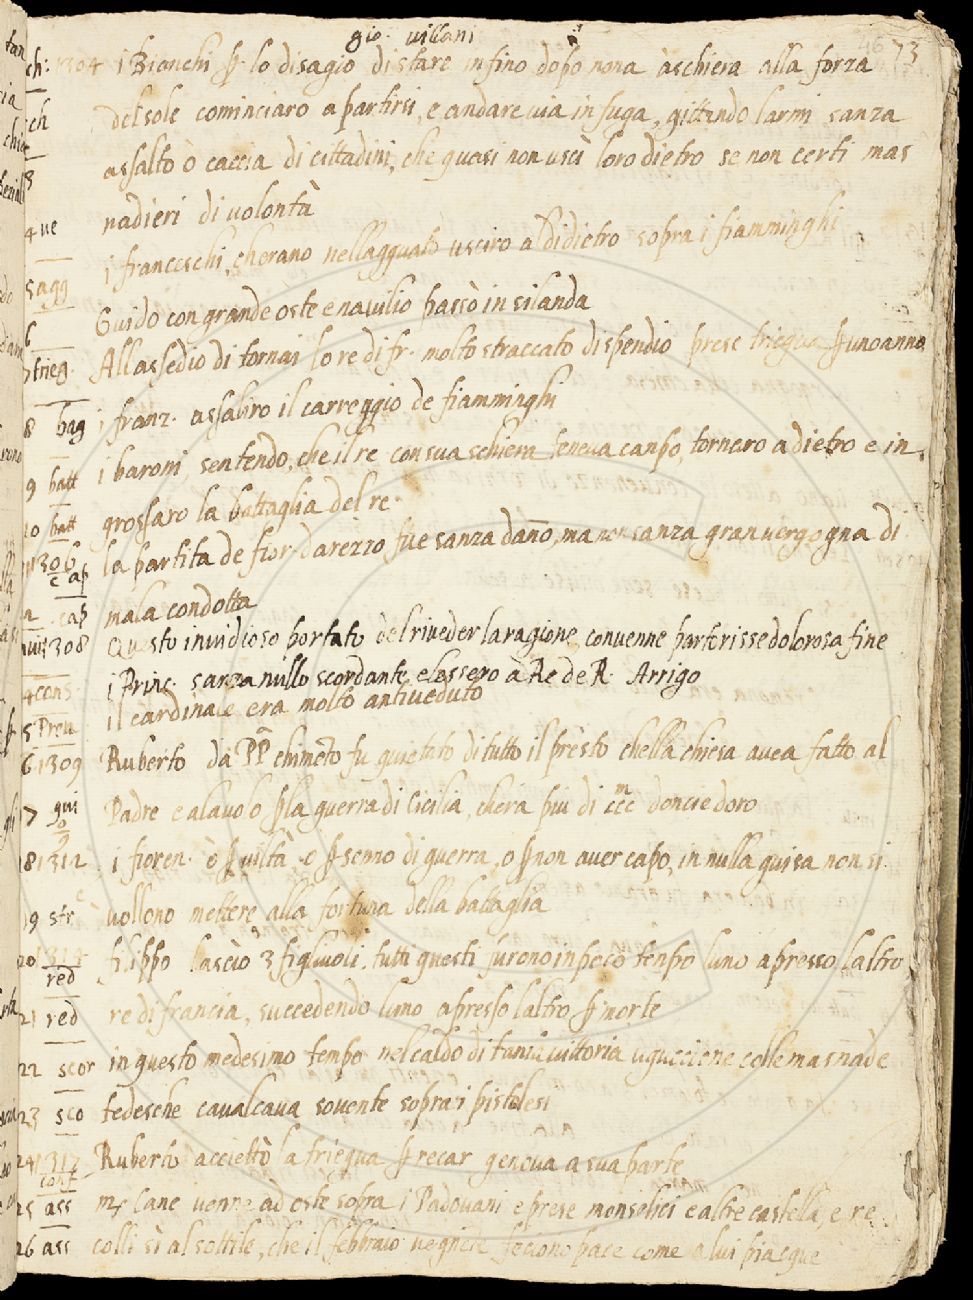 gio. villani
46 73
ch: 1304 i Bianchi p lo disagio di stare in fino dopo nona à schiera alla forza
ch del sole cominciaro a partirsi, e andare via in fuga, gittando larmi sanza
3 assalto ò caccia di cittadini, che quasi non uscì loro dietro se non certi mas
4 ue nadieri di volontà
5 agg i franceschi, cherano nellagguato usciro aldidietro sopra i fiamminghi
6 Guido con grande oste e navilio passò in silanda
7 trieg. All assedio di tornai lo re di fr. molto straccato dispendio prese triegua p uno anno
8 bag i franz. assaliro il carreggio de fiamminghi
9 batt i baroni, sentendo, che il re con sua schiera teneva canpo, tornaro adietro e in
10 batt grossaro la battaglia del re.
1306 c ap la partita de fior. darezzo fue sanza dano, ma non sanza gran vergogna di
cap mala condotta
1308 Questo invidioso portato del riveder la ragione convenne partorisse dolorosa fine
4 cons i Princ. sanza nullo scordante elessero à Re de R. Arrigo
5 Preu il cardinale era molto antiveduto
6 1309 Ruberto da PP chimeto fu quietato di tutto il presto chella chiesa avea fatto al
7 gui Padre e alavolo p la guerra di Cicilia, chera piu di ccc m doncie doro
18 1312 i fioren. o p viltà o p senno di guerra, o p non aver capo, in nulla guisa non si
19 str vollono mettere alla fortuna della battaglia
20 1314 red filippo lasciò 3 figliuoli. tutti questi furono in poco tenpo luno apresso laltro
21 red re di francia, succedendo luno apresso laltro p morte
22 scor in questo medesimo tempo nel caldo di tanta vittoria uguccione colle masnade
23 sco tedesche cavalcava sovente sopra i pistolesi
24 1317 conf Ruberto accettò la triegua p recar genova a sua parte
25 ass mr Cane venne ad oste sopra i Padovani e prese monselici e altre castella, e re
26 ass colli sì al sottile, che il febbraio vegnente feciono pace come a lui piacque